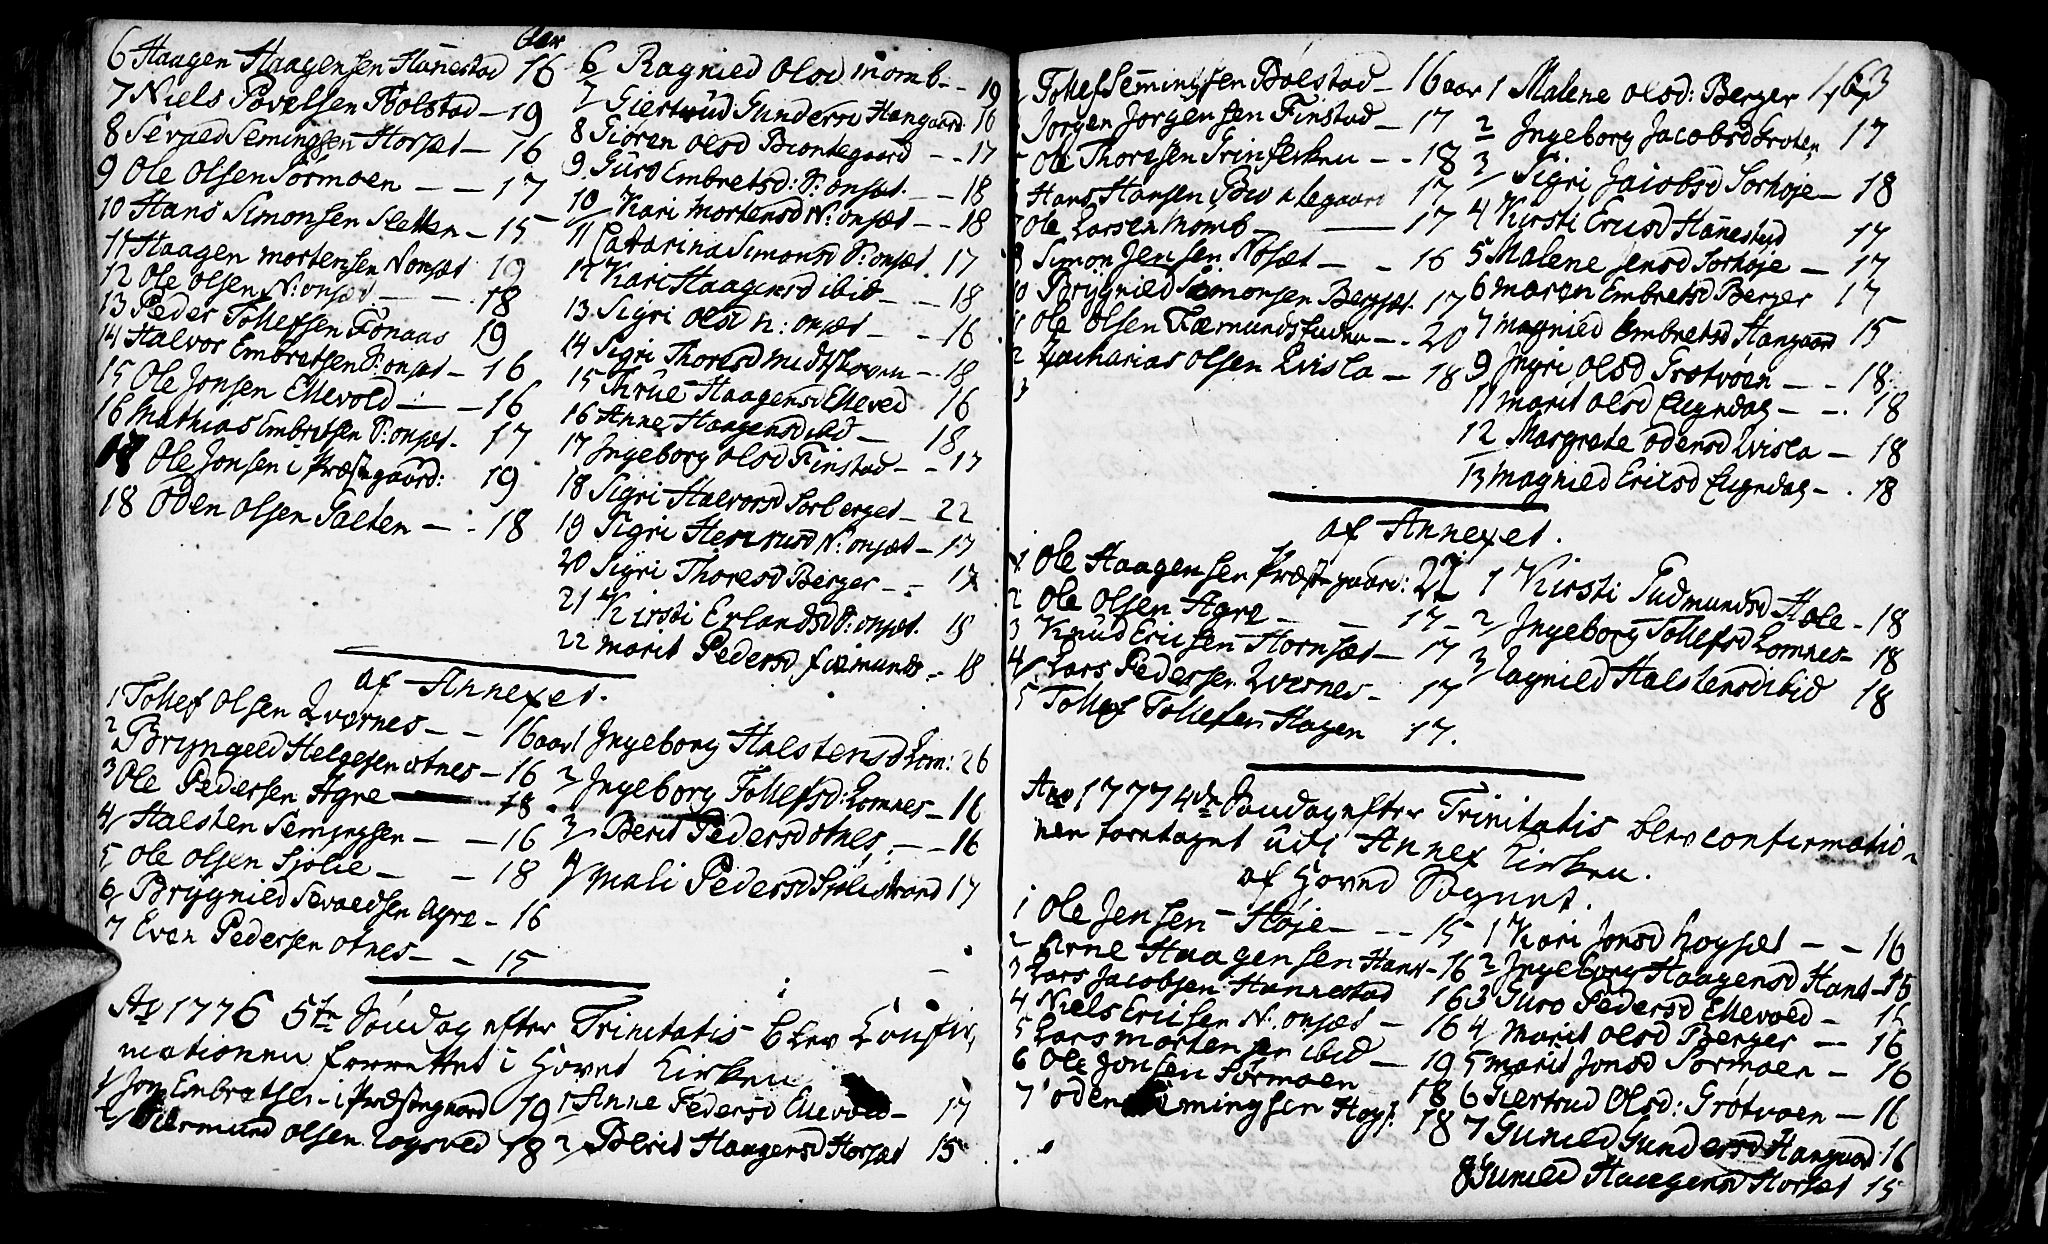 aar
6 Haagen Haagensen Hanestad 16
7 Niels Povelsen Bolstad - 19
8 Sevald Semingsen Horset - 16
9 Ole Olsen Sormoen - - 17
10 Hans Simonsen Sletten - 15
11 Haagen mortensen N onset 19
12 Ole Olsen N: onset - - 18
13 Peder Tollefsen Fonaas 19
14 Halvor Embretsen S: onset - 16
15 Ole Jonsen Ellevold - - 16
16 Mathias Embretsen S: onset - 17
17 Ole Jonsen i Præstgaard: 19
18 Oden Olsen Saeten - - 18
6 Ragnied Olsd momb - - 19
7 Giertrud Gundersd Haugaard 16
8 Sioren Olsd Biontegaard - - 17
9 Guro Embretsd: S: onset - - 18
10 Kari Mortensd N: onset - - 18
11 Catarina Simonsd S: onset. 17
12 Kari Haagensd ibid - - 18
13 Sigri Olsd N: onset - - 16
14 Sigri Thoresd midtskoven - 18
15 Thrue Haagensd Elleved 16
16 Anne Haagensd ibid - 18
17 Ingeborg Olsd Finstad - - 17
18 Sigri Halvorsd Sorberget - 22
19 Sigri N: onset - 17
20 Sigri Thoresd Berger - - 17
21 Kirsti Erlandsd S: onset.
22 Marit Pedersd - 18
af Annexet.
1 Tollef Olsen Qvernes - - 16 aar
2 Bryngeld Helgesen otnes - 16
3 Ole Pedersen Agre - 18
4 Halsten Semingsen - - 16
5 Ole Olsen Sjolie - - 18
6 Brygnied Sevaldsen Agre - 16
7 Even Pedersen otnes - - 15
1 Ingeborg Halstensd Lom: 26
2 Ingeborg Tollefsd: Lomnes - 16
3 Berit Pedersd otnes - - 16
4 Mali Pedersd Sjolistrand 17
Ao 1776 5te Søndag efter Trinitatis blev Confir,
mationen forrettet i Hoved Kirken
1 Jon Embretsen i Præstegaard 19
2 olsen 18
1 Anne Pedersd Ellevold - 17
2 Berit Haagensd Horset 15
163
Tollef Semingsen Bolstad - 16 aar
Jorgen Jorgensen Finstad - 17
Ole Thoresen - - 18
Hans Hansen 17
Ole Larsen Momb - 17
Simon Jensen Noset - - 16
Brygnied Simonsen Bergset. 17
Ole Olsen - . 20
Zacharias Olsen Qvisla - 18
1 Malene olsd: Berger
2 Ingeborg Jacobsd 17
3 Sigri Jacobsd Sorhoje - 18
4 Kirsti Ericsd Hanestad 17
5 Malene Jensd Sorhoje - 17
6 maren Embretsd Berger 17
7 magnied Embretsd Haugaard 15
9 Ingri Olsd Grotvoen - - 18
11 marit olsd - - 18
12 Margrete Odensd Qvisla - 18
13 magnied Ericsd - . 18
af Annexet.
1 Ole Haagensen Præstgaard:
2 Ole Olsen Agre - - 17 -
3 Knud Ericsen Hornset - 17
4 Lars Pedersen Qvernes - 17
5 Tollef Tollefsen Hagen 17.
1 Kirsti Gudmundsd Hole - 18
2 Ingeborg Tollefsd Lomnes - 18
3 Ragnied Halstensd ibid 18
Ano 1777 4de Søndag efter Trinitatis blev confirmatio-
nen foretaget udi Annex Kirken.
af Hoved Sognet.
1 Ole Jensen Høje - - - 15
2 Arne Haagensen Hane - 16
3 Lars Jacobsen Hannestad 16
4 Niels Ericsen N: onset - 16
5 Lars mortensen ibid - 19
6 Ole Jonsen Sormoen 18
7 oden Semingsen 18
1 Kari Jonsd - - 16
2 Ingeborg Haagensd Hane - 15
3 Guro Pedersd Ellevold - 16
4 Marit Olsd Berger - 16
5 marit Jonsd Sormoen - 16
6 Giertrud Olsd: Grotvoen - 16
7 Gunild Gundersd Haugaard 16
8 Gunild Haagensd Horset 15